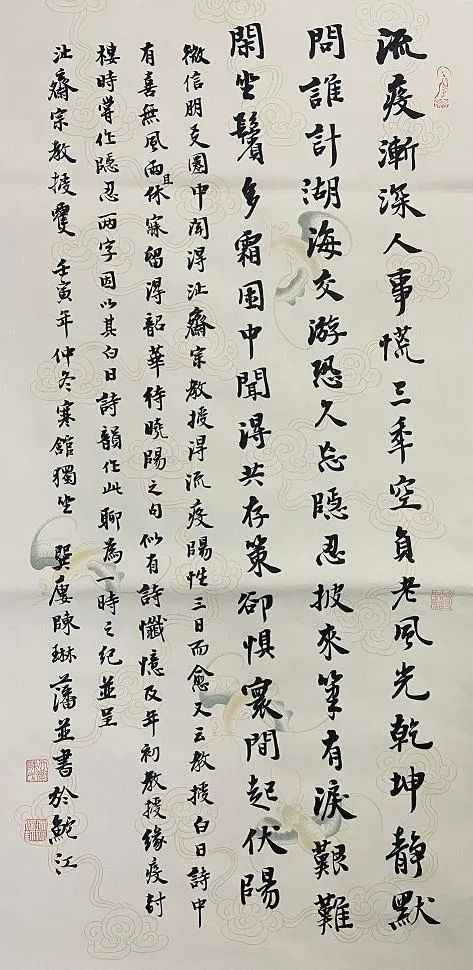 流疫漸深人事慌三秊空負老風光乾坤靜默
問誰計湖海交游恐久忘隱忍披來筆有淚艱難
閑坐鬢多霜困中聞得共存策卻懼寰間起伏陽
微信朋友圈中聞得沚齋宗教授得流疫陽性三日而愈又云教授白日詩中
有喜無風雨且休寐留得韶華待曉陽之句似有詩懺憶及年初教授緣疫封
樓時嘗作隱忍兩字因以其白日詩韻作此聊為一時之紀並呈
沚齋宗教授 壬寅年仲冬寒館獨坐 巽廔陳琳藩並書於鮀江